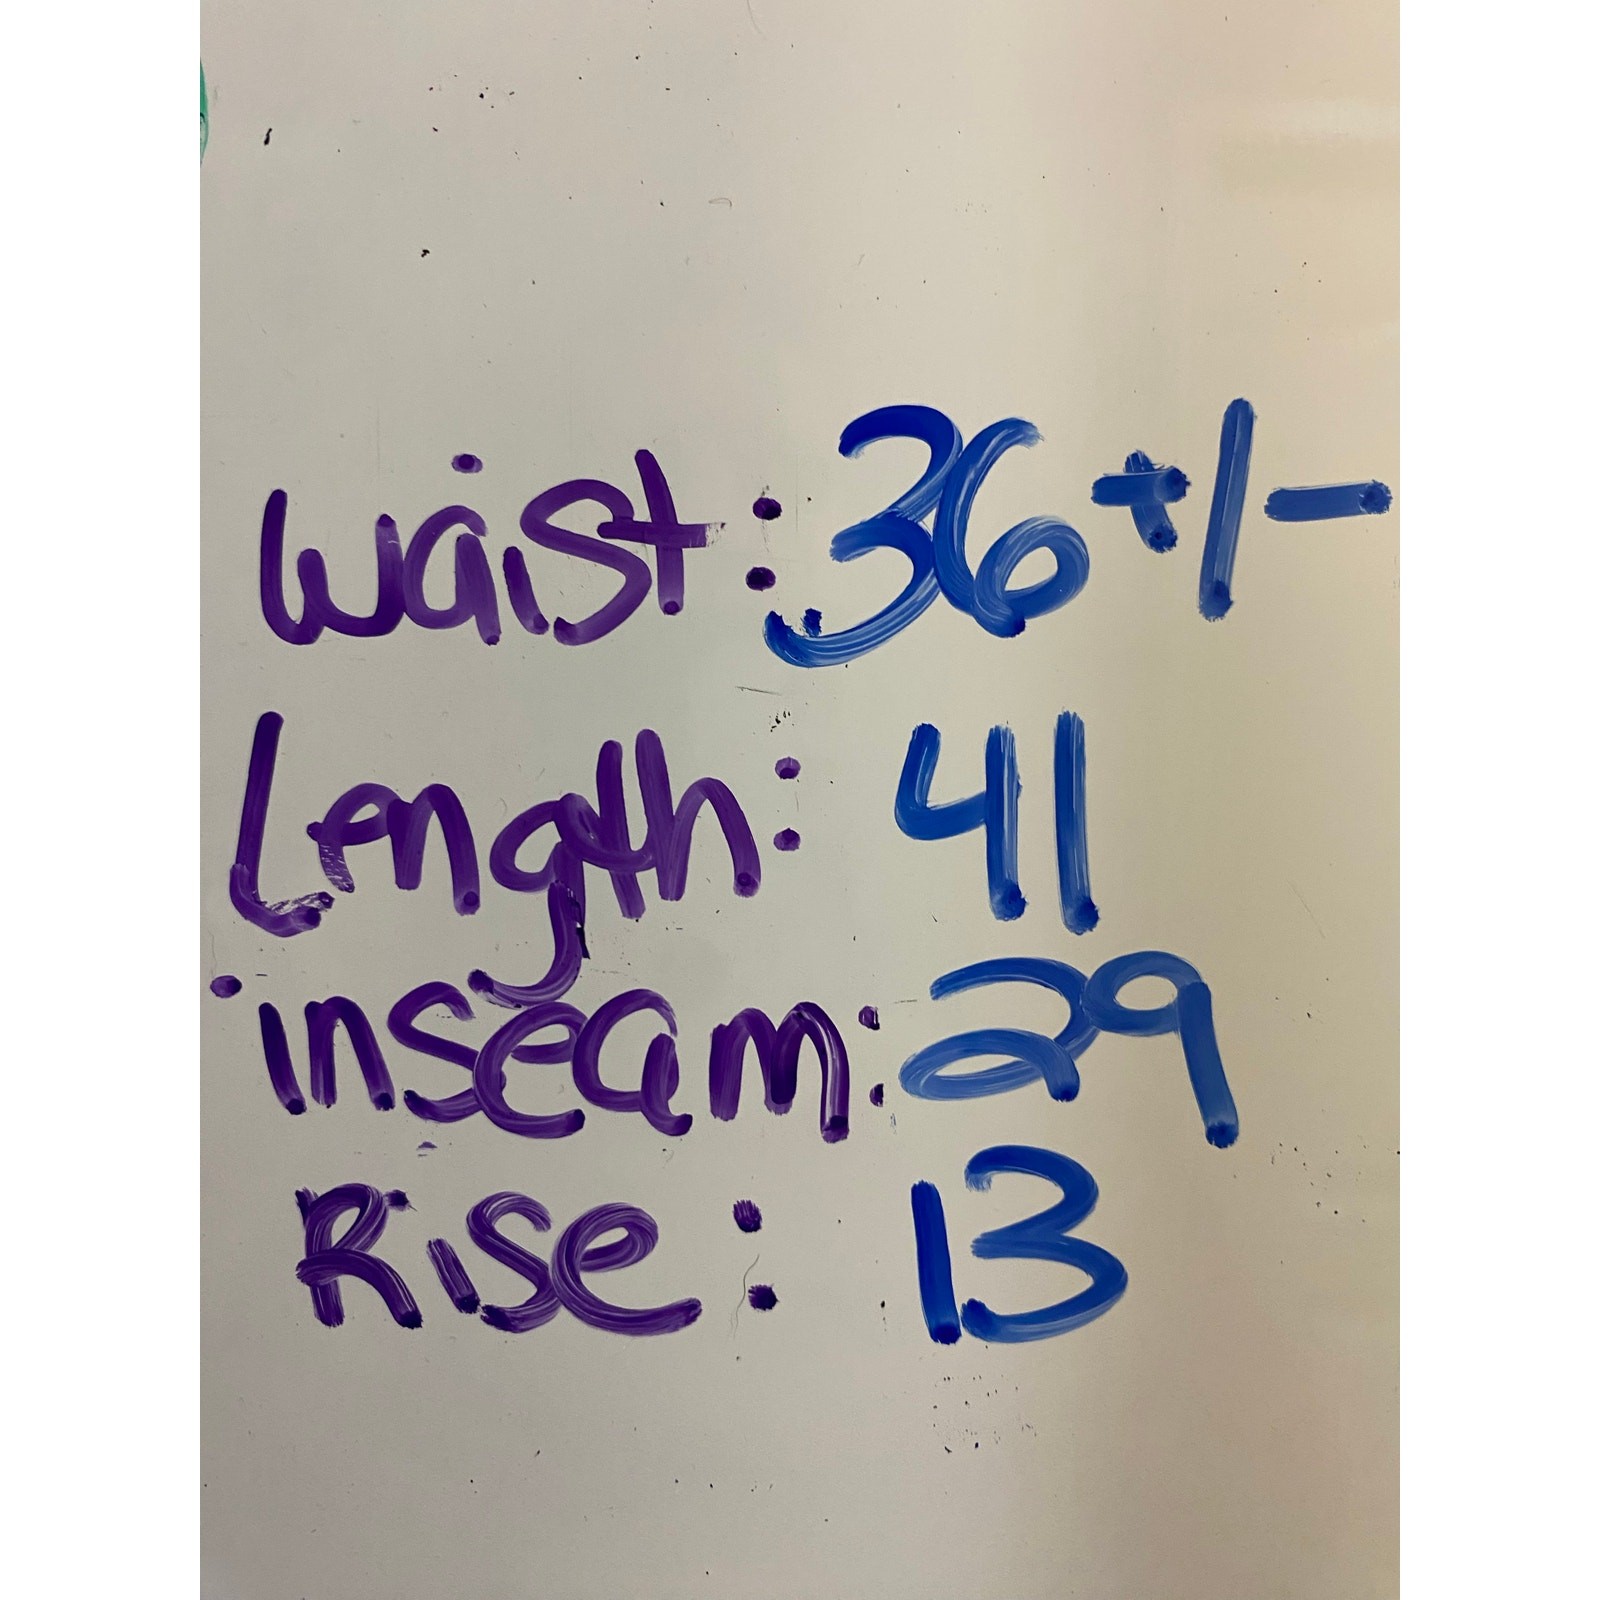 waist: 36 +/-
Length: 41
inseam: 29
Rise: 13